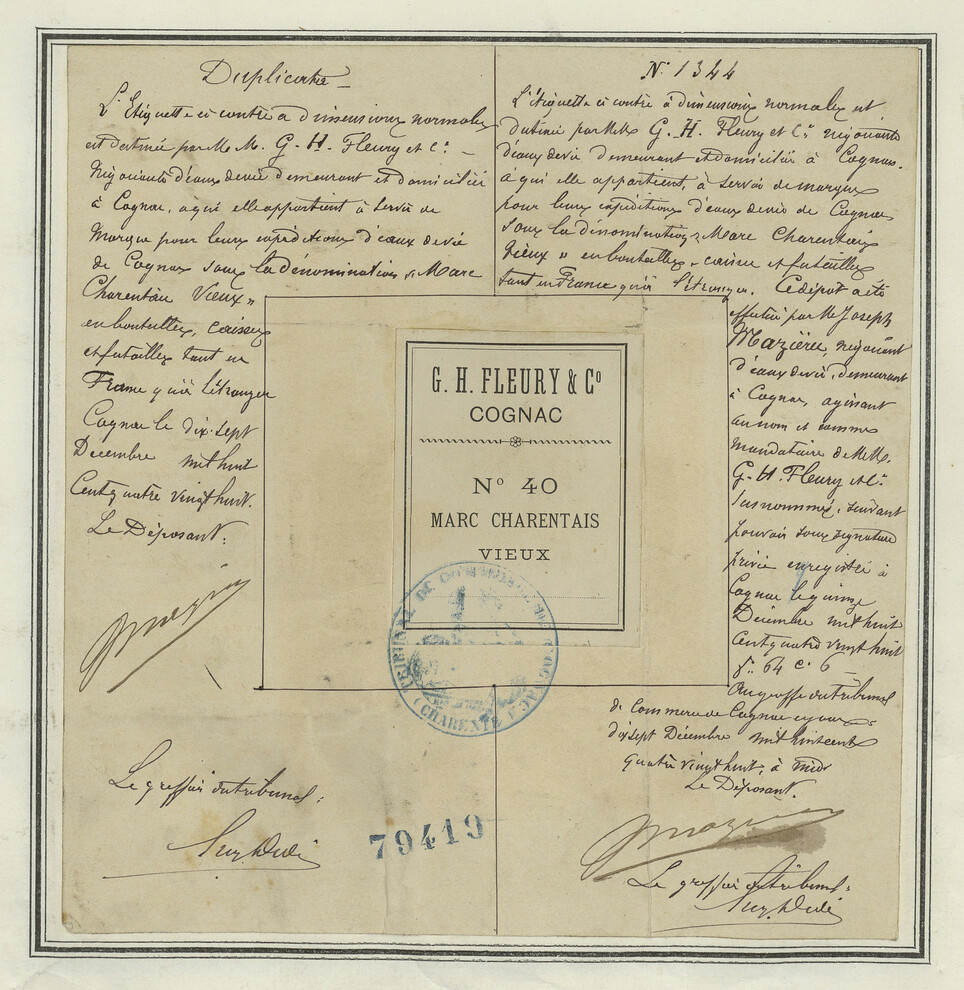 Duplicata
L'Etiquette ci contre à dimensions normales
est destinée par M. M. G. H. Fleury et Cie
Négociants d'eaux devie demeurant et domiciliés
à Cognac, a qui elle appartient à servir de
Marque pour leurs expéditions d'eaux devie
de Cognac sous la dénomination "Marc
Charentais Vieux"
en bouteilles, caisses
et futailles tant en
France qu'à l'étranger
Cognac le dix-sept
Décembre mil huit
Cent quatre vingt huit.
Le Déposant:
Le greffier du tribunal:
No 1344
L'étiquette ci contre à dimensions normales est
destinée par MM. G. H. Fleury et Cie négociants
d'eaux devie demeurant et domiciliés à Cognac.
à qui elle appartient, à servir de marque
pour leurs expéditions d'eaux devie de Cognac
sous la dénomination "Marc Charentais
Vieux" en bouteilles, caisses et futailles
tant en France qu'à l'étranger. Ce dépot a été
effectué par M. Joseph
Mazière, négociant
d'eaux devie, demeurant
à Cognac, agissant
au nom et comme
mandataire de M.M.
G. H. Fleury et Cie
susnommés, suivant
pouvoir sous signature
privée enregistré à
Cognac le quinze
Décembre mil huit
Cent quatre vingt huit
fo. 64 c. 6
Au greffe du tribunal
de Commerce de Cognac ce jour
dix sept Décembre mil huit cent
quatre vingt huit, à midi
Le Déposant.
Le greffier du tribunal:
G. H. FLEURY & Co
COGNAC
No 40
MARC CHARENTAIS
VIEUX
TRIBUNAL DE COMMERCE DE COGNAC
(CHARENTE)
79419